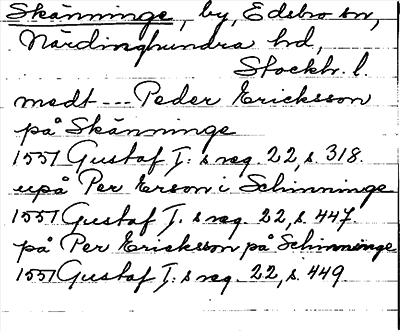 Skänninge, by, Edsbro sn,
Närdinghundra hd,
Stockh. l.
medt --- Peder Ericksson
på Skänninge
1551 Gustaf I: s reg. 22, s. 318.
upå Per Erson i Schinninge
1551 Gustaf I. s reg. 22, s. 447.
på Per Ericksson på Schinninge
1551 Gustaf I: s reg. 22, s. 449.